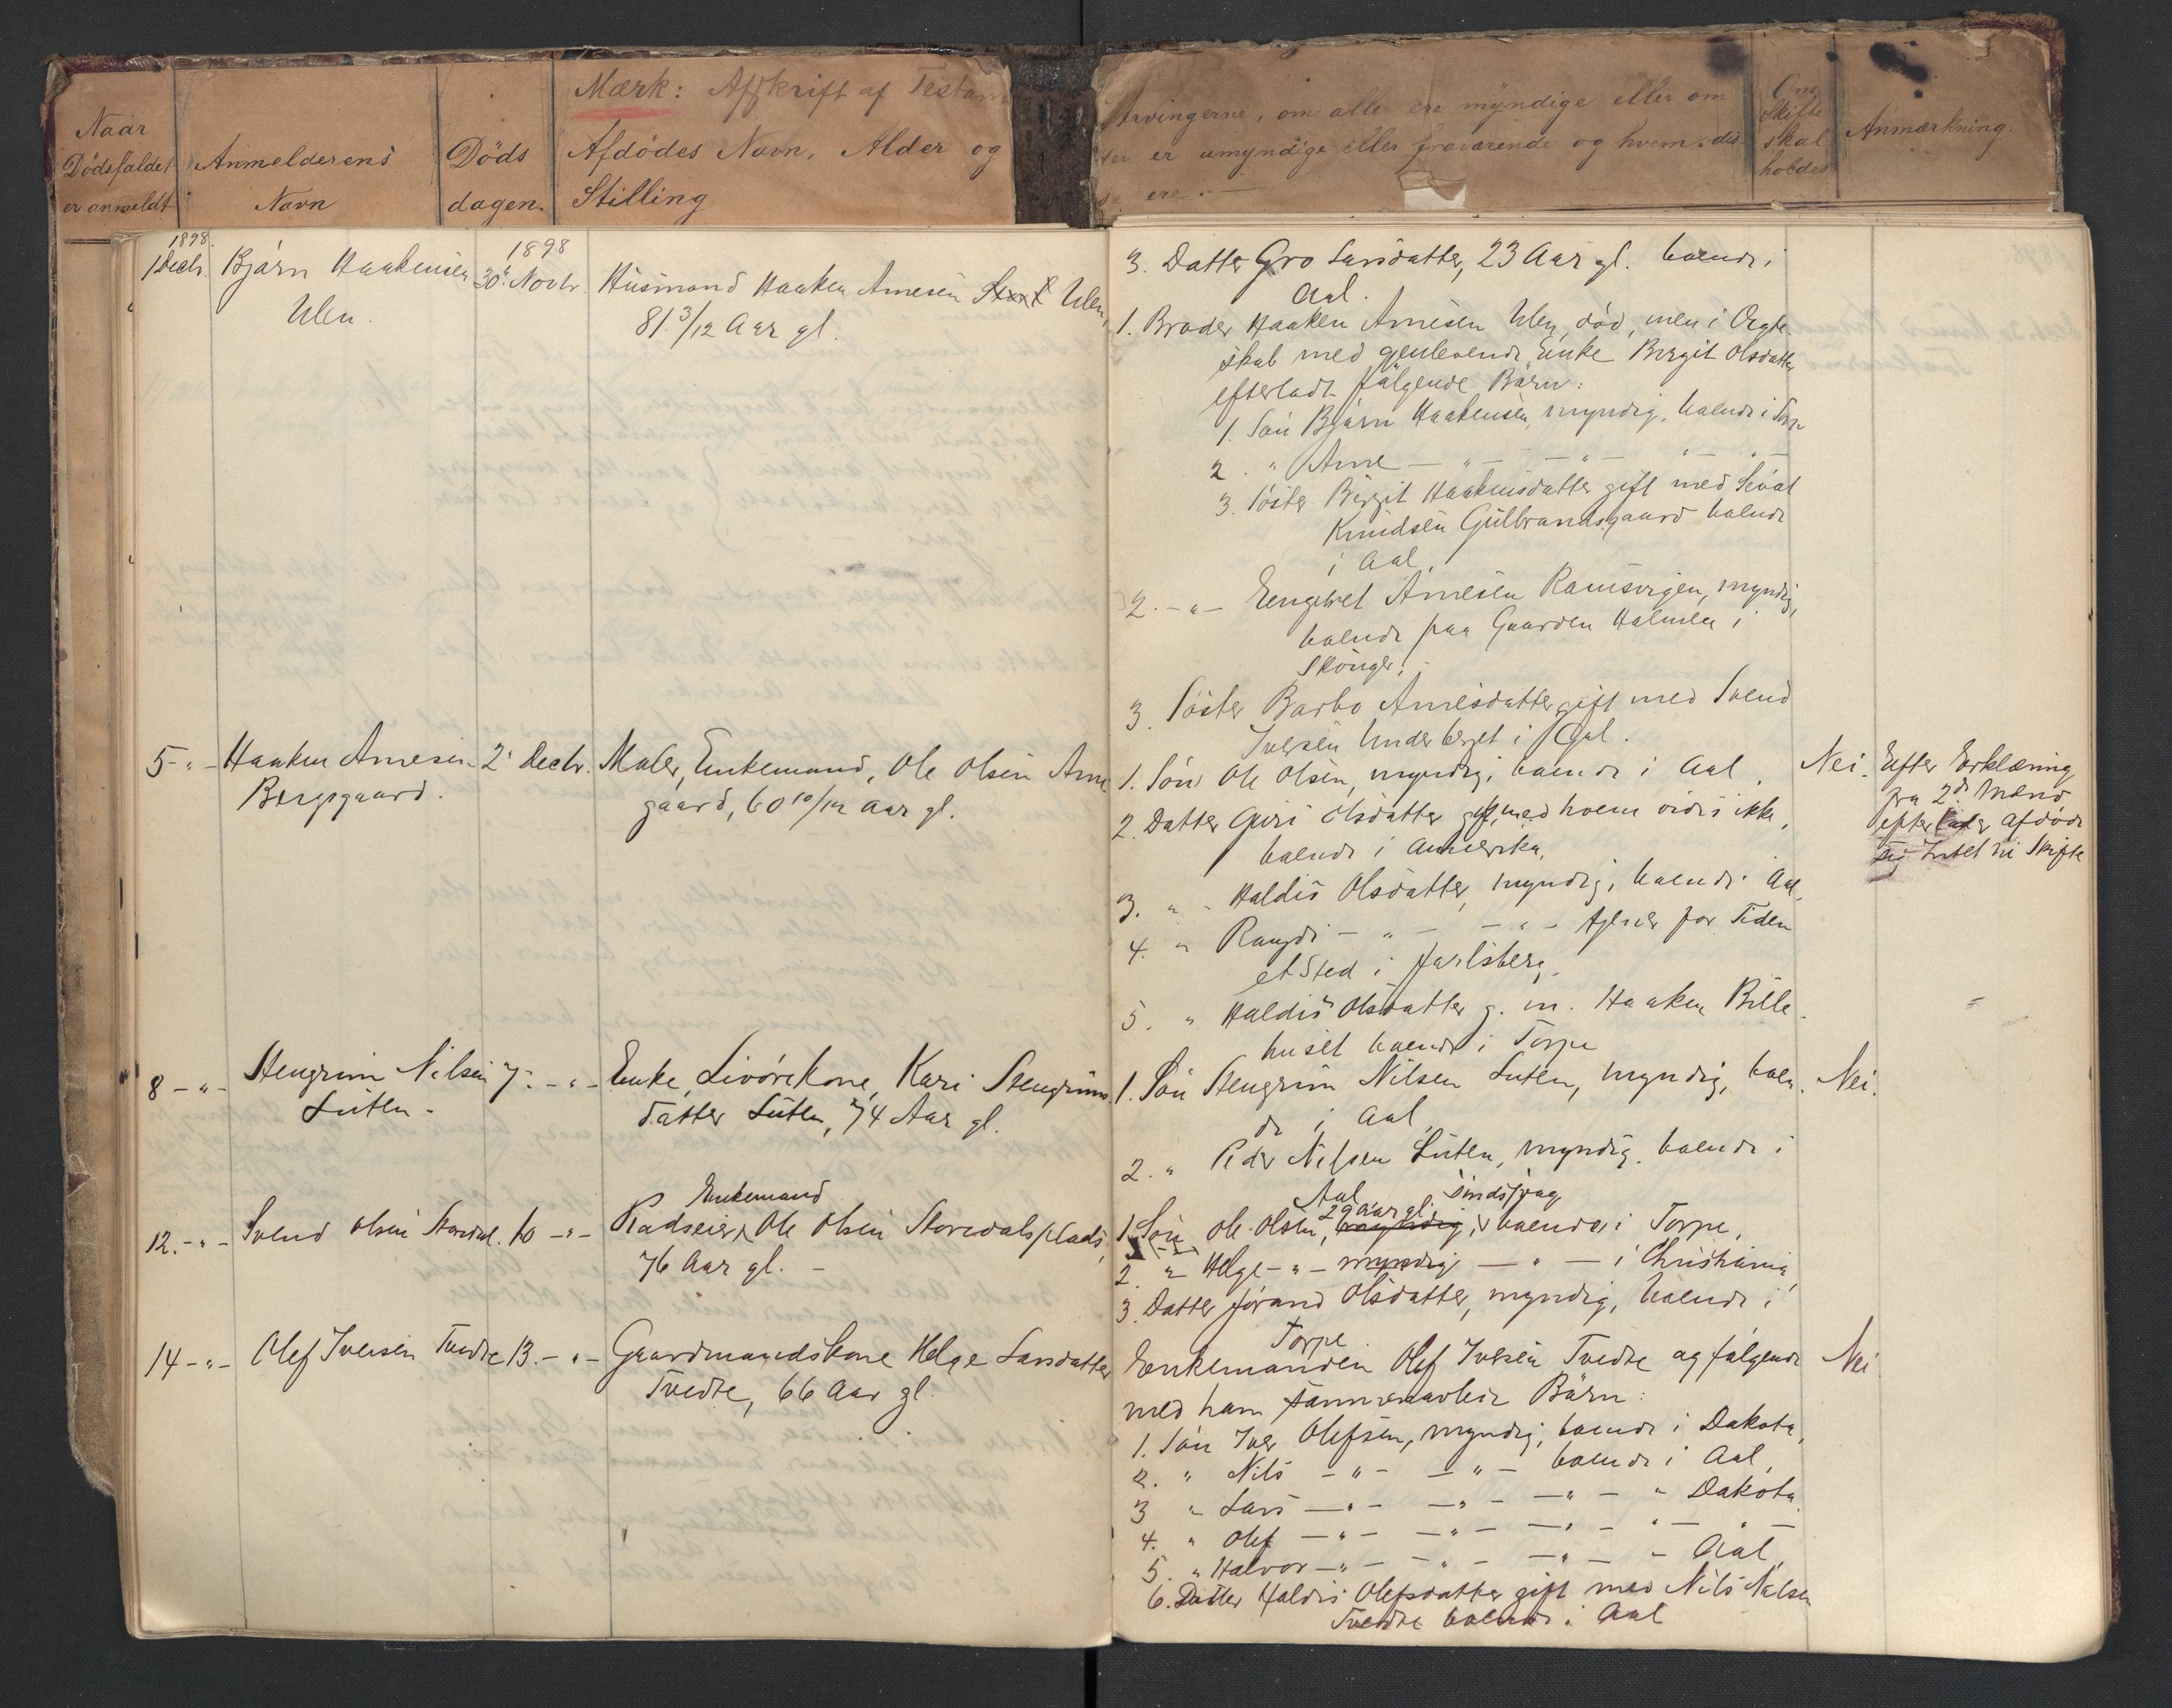 Mærk: Afskrift af Testam
Naar
Dödsfaldet
er anmeldt
Anmelderens
Navn
Döds
dagen.
Afdödes Navn, Alder og
Stilling
Arvingerne, om alle ere myndige eller om
er umyndige eller fraværende og hvem dis-
se ere.
Om
Skifte
skal
holdes
Anmærkning.
1898.
1 Decbr.
Bjørn Haakensen
Ulen.
1898
30. Novbr.
Husmand Haaken Arnesen Ulen,
81 3/12 Aar gl.
3. Datter Gro Larsdatter, 23 Aar gl. boende i
Aal.
1. Broder Haaken Arnesen Ulen, død, men i Ægte-
skab med gjenlevende Enke Birgit Olsdatter
efterladt følgende Børn:
1. Søn Bjørn Haakensen, myndig, boende i Torpe
2. " Arne — " — — " — " — " —
3. Søster Birgit Haakensdatter gift med Sevat
Knudsen Gulbrandsgaard boende
i Aal.
2. — " — Engebret Arnesen Ramsvigen, myndig,
boende paa Gaarden Halmen i
Skouger.
3. Søster Barbo Arnesdatter gift med Svend
Iversen Underberget i Gol.
5 - " - Haaken Arnesen
Bergsgaard.
2. Decbr.
Maler, Enkemand, Ole Olsen Arne
gaard, 60 10/12 Aar gl.
1. Søn Ole Olsen, myndig, boende i Aal.
2. Datter Guri Olsdatter gift, med hvem vides ikke,
boende i Amerika.
3. " - Haldis Olsdatter, myndig, boende i Aal.
4. " Rangdi — " — — " — tjener for Tiden
et Sted i Jarlsberg.
5. " Haldis Olsdatter g. m. Haaken Bille-
huset boende i Torpe
Nei.
Efter Erklæring
fra 2de Mænd
efterlader afdøde
sig Intet til Skifte
8 - " -
Stengrim Nilsen
Luten.
7. - " -
Enke, Livørekone, Kari Stengrims
datter Luten, 74 Aar gl.
1. Søn Stengrim Nilsen Luten, myndig, boen-
de i Aal,
2. " Peder Nilsen Luten, myndig, boende i
Aal
Nei.
12. - " - Svend Olsen Storedal.
10 - " -
Enkemand
Pladseier, Ole Olsen Storedalsplads,
76 Aar gl. -
29 aar gl. sindssvag,
1. Søn Ole Olsen, myndig, boende i Torpe,
2. " Helge - " - myndig — " — i Christiania,
3. Datter Jørand Olsdatter, myndig, boende i
Torpe
14 - " -
Olef Iversen Tvedte
13. - " -
Gaardmandskone Helge Larsdatter
Tvedte, 66 Aar gl.
Enkemanden Olef Iversen Tvedte og følgende
med ham sammenavlede Børn:
1. Søn Iver Olefsen, myndig, boende i Dakota,
2. " Nils - " - - " - boende i Aal,
3 " Lars — " - — " - — " - " Dakota
4. " Olef — " - — " - — " - " — " —
5. " Halvor — " - — " - — " - " Aal,
6. Datter Haldis Olefsdatter gift med Nils Nilsen
Tvedte boende i Aal
Nei